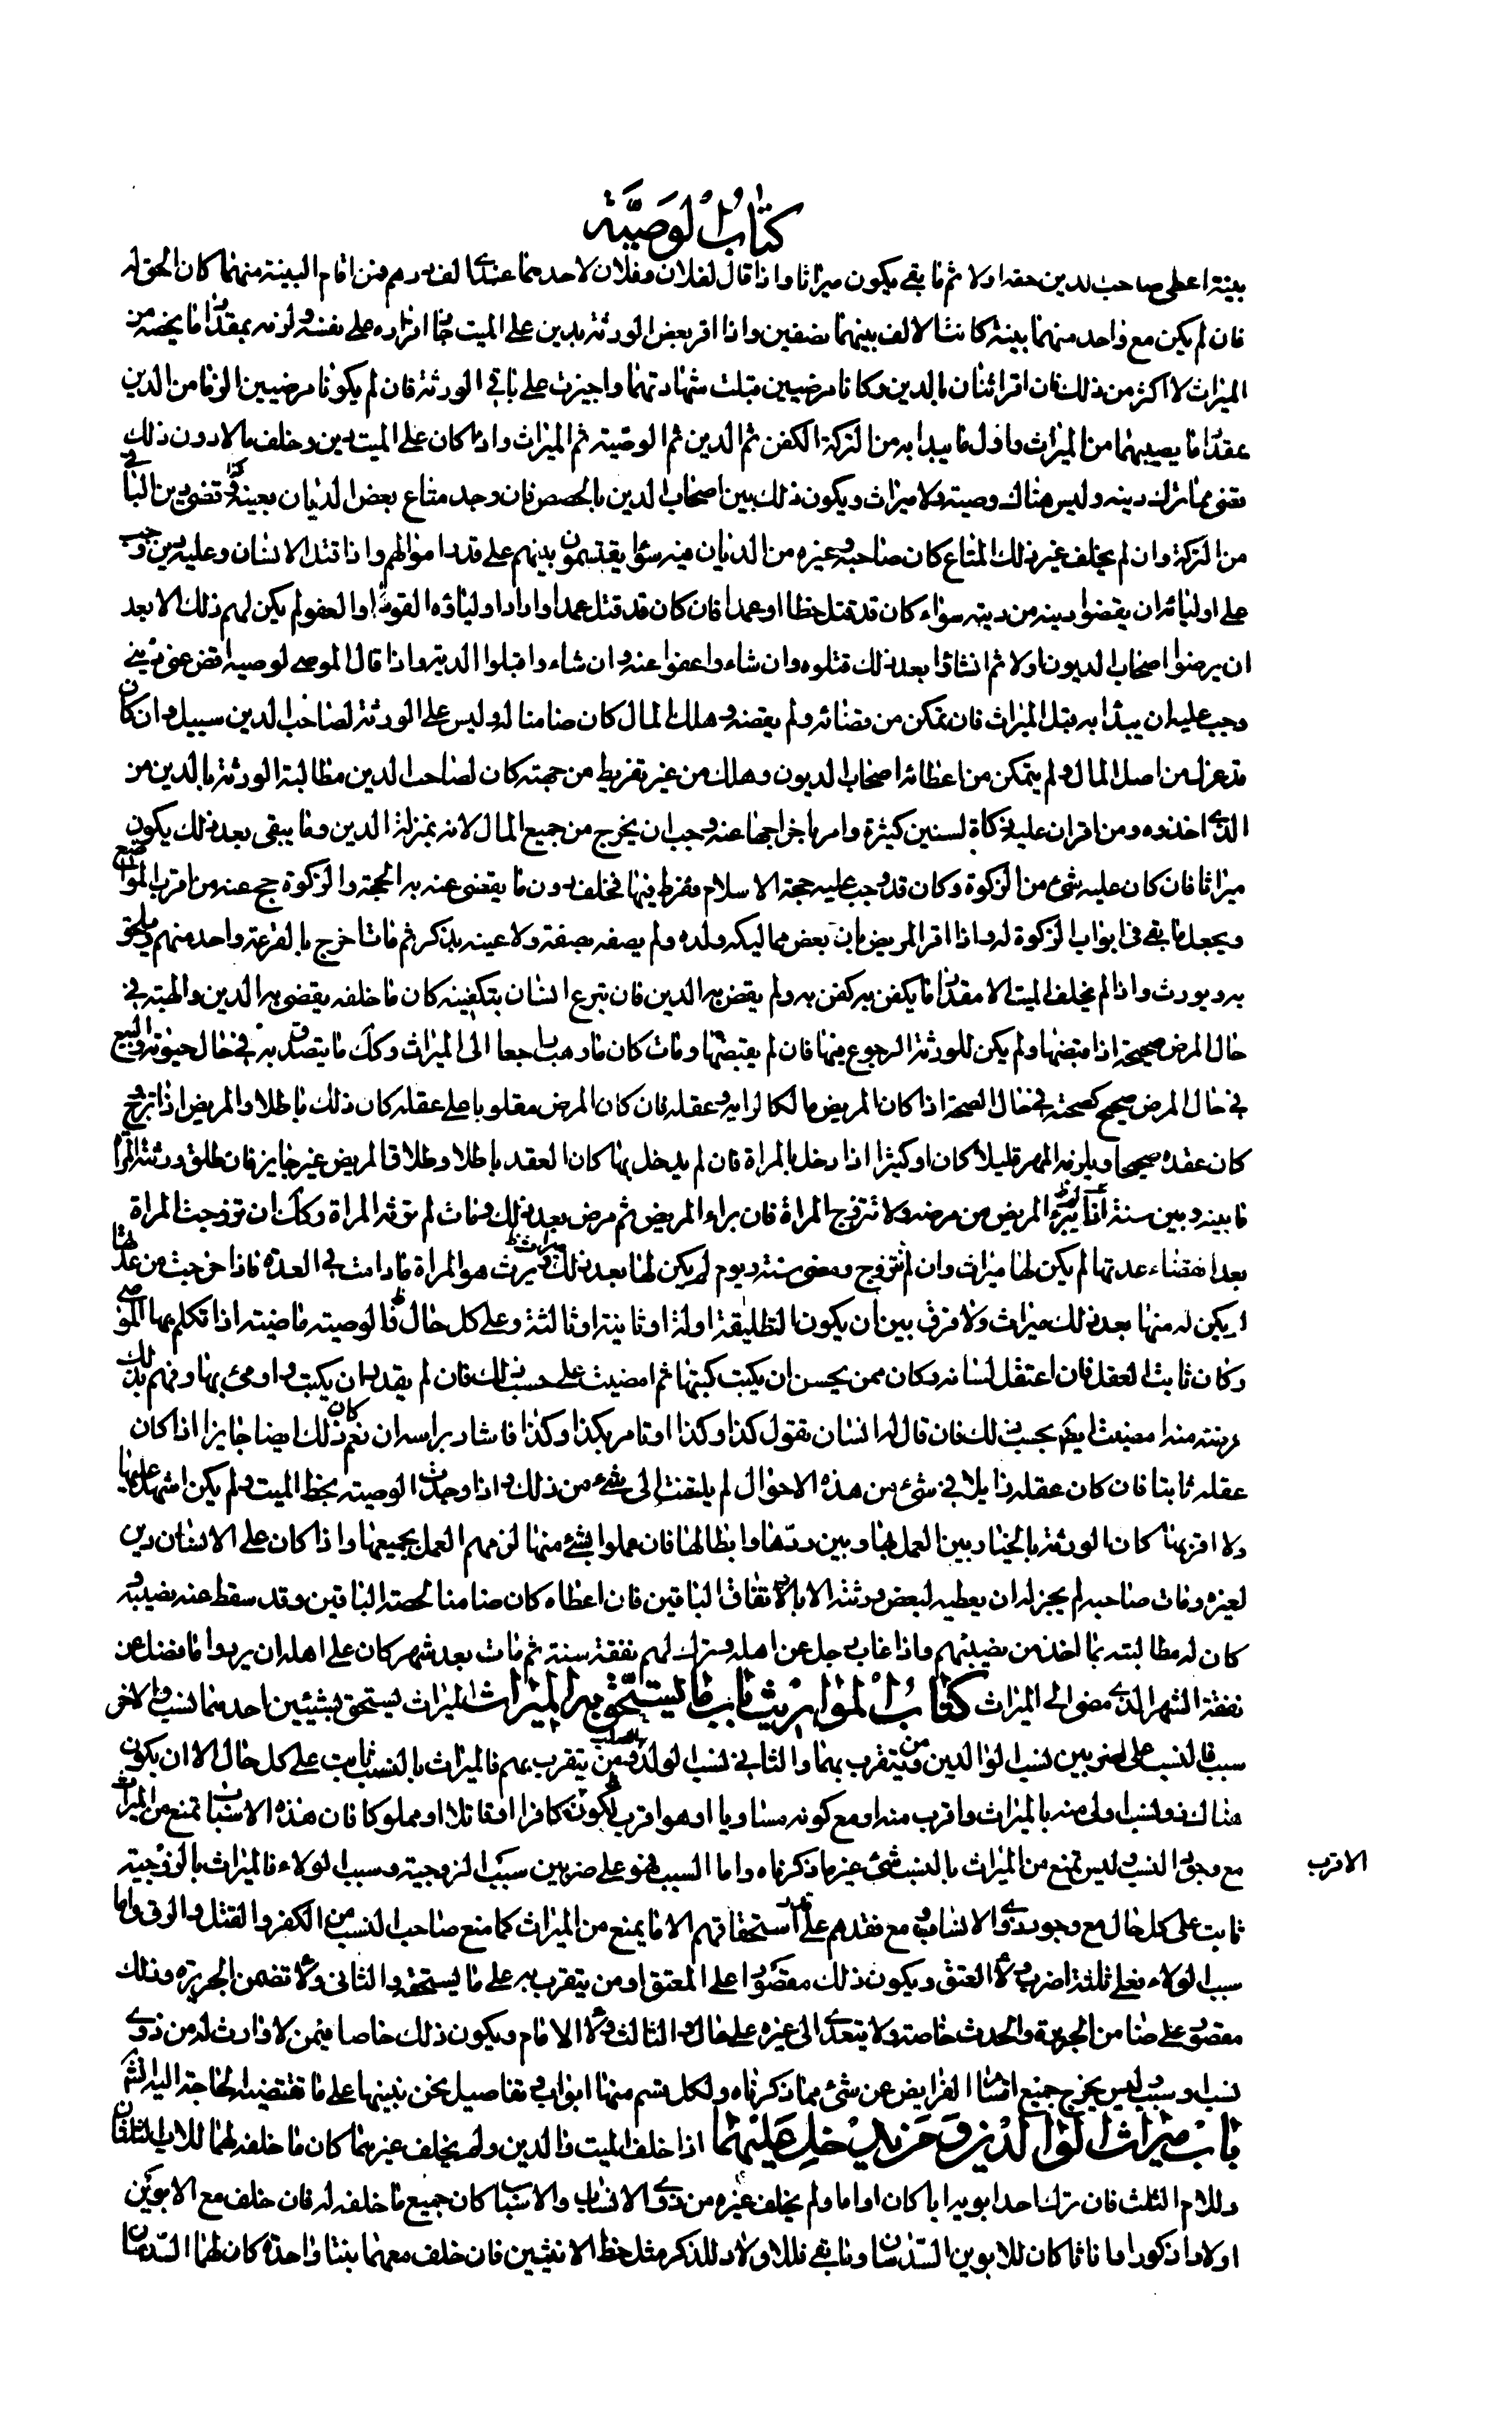 كتاب الوصية
بينة اعطى صاحب الدين حقه اولا ثم ما بقى يكون ميراثا واذا قال لفلان وفلان لاحدهما عندى الف درهم فمن اقام البينة منهما كان الحق له
فان لم يكن مع واحد منهما بينة كانت الالف بينهما نصفين واذا اقر بعض الورثة بدين على الميت جاز اقراره على نفسه ولزمه بمقدار ما يخصه من
الميراث لا اكثر من ذلك فان اقر اثنان بالدين وكانا مرضيين قبلت شهادتهما واجيزت على باقى الورثة فان لم يكونا مرضيين الزما من الدين
بمقدار ما يصيبهما من الميراث واول ما يبدا به من التركة الكفن ثم الدين ثم الوصية ثم الميراث واذا كان على الميت دين وخلف مالا دون ذلك
قضى بما ترك دينه وليس هناك وصية ولا ميراث ويكون ذلك بين اصحاب الدين بالحصص فان وجد متاع بعض الديان بعينه وقضى دين الباقين
من التركة وان لم يخلف غير ذلك المتاع كان صاحبه وغيره من الديان فيه سواء يقتسمون بينهم على قدر اموالهم واذا قتل الانسان وعليه دين وجب
على اوليائه ان يقضوا دينه من ديته سواء كان قد قتل خطا او عمدا فان كان قد قتل عمدا واراد اولياؤه القود او العفو لم يكن لهم ذلك الا بعد
ان يرضوا اصحاب الديون اولا ثم ان شاؤا بعد ذلك قتلوه وان شاءوا عفوا عنه وان شاءوا قبلوا الدية واذا قال الموصى لوصيه اقض عنى دينى
وجب عليه ان يبدا به قبل الميراث فان تمكن من قضائه ولم يقضه وهلك المال كان ضامنا له وليس على الورثة لصاحب الدين سبيل وان كان
قد عزل من اصل المال ولم يتمكن من اعطائه اصحاب الديون وهلك من غير تفريط من جهته كان لصاحب الدين مطالبة الورثة بالدين من
الذى اخذوه ومن اقر ان عليه زكاة لسنين كثيرة وامر باخراجها عنه وجب ان يخرج من جميع المال لانه بمنزلة الدين وما يبقى بعد ذلك يكون
ميراثا فان كان عليه شئ من الزكوة وكان قد وجب عليه حجة الاسلام ففرط فيها فخلف دون ما يقضى عنه به الحجة والزكوة حج عنه من اقرب المواضع
ويجعل ما بقى فى ابواب الزكوة له واذا اقر المريض بان بعض مماليكه ولده ولم يصفه بصفة ولا عينه بذكر ثم مات اخرج بالقرعة واحد منهم ويلحق
به ويورث واذا لم يخلف الميت الا مقدار ما يكفن به كفن به ولم يقض به الدين فان تبرع انسان بتكفينه كان ما خلفه يقضى به الدين والهبة فى
حال المرض صحيحة اذا قبضها ولم يكن للورثة الرجوع فيها فان لم يقبضها ومات كان ما وهب راجعا الى الميراث وكك ما يتصدق به فى حال حيوته والبيع
فى حال المرض صحيح كصحته فى حال الصحة اذا كان المريض مالكا لرايه وعقله فان كان المرض مغلوبا على عقله كان ذلك باطلا والمريض اذا تزوج
كان عقده صحيحا ويلزمه المهر قليلا كان او كثيرا اذا دخل بالمراة فان لم يدخل بها كان العقد باطلا وطلاق المريض غير جايز فان طلق ورثته المراة
ما بينه وبين سنة اذا لم يبرء المريض من مرضه ولا تتزوج المراة فان براء المريض ثم مرض بعد ذلك ومات لم ترثه المراة وكك ان تزوجت المراة
بعد انقضاء عدتها لم يكن لها ميراث وان لم تتزوج ومضى سنة ويوم لم يكن لها بعد ذلك ميراث ويرث هو المراة مادامت فى العدة فاذا خرجت من عدتها
لم يكن له منها بعد ذلك ميراث ولا فرق بين ان يكون التطليقة اولة او ثانية او ثالثة وعلى كل حال والوصية ماضية اذا تكلم بها الموصى
وكان ثابت العقل فان اعتقل لسانه وكان ممن يحسن ان يكتب كتبها ثم امضيت على حسب ذلك فان لم يقدر ان يكتب واومئ بها وفهم بذلك
غرضه منه امضيت ايضا بحسب ذلك فان قال له انسان تقول كذا وكذا او تامر بكذا وكذا فاشار براسه ان نعم كان ذلك ايضا جايزا اذا كان
عقله ثابتا فان كان عقله زايلا فى شئ من هذه الاحوال لم يلتفت الى شئ من ذلك واذا وجدت الوصية بخط الميت ولم يكن اشهد عليها
ولا اقر بها كان الورثة بالخيار بين العمل بها وبين ردها وابطالها فان عملوا بشئ منها لزمهم العمل بجميعها واذا كان على الانسان دين
لغيره ومات صاحبه لم يجز له ان يعطيه لبعض ورثته الا باتفاق الباقين فان اعطاه كان ضامنا لحصة الباقين وقد سقط عنه نصيبه
كان له مطالبته بما اخذ من نصيبهم واذا غاب رجل عن اهله وترك لهم نفقة سنة ثم مات بعد شهر كان على اهله ان يردوا ما فضل عن
نفقة الشهر الذى مضى الى الميراث كتاب المواريث باب ما يستحق به الميراث الميراث يستحق بشيئين احدهما نسب والاخر
سبب فالنسب على ضربين نسب الوالدين ومن يتقرب بهما والثانى نسب الولد ومن يتقرب بهم فالميراث بالنسب ثابت على كل حال الا ان يكون
هناك ذو نسب اولى منه بالميراث واقرب منه او مع كونه مساويا او هو اقرب يكون كافرا او قاتلا او مملوكا فان هذه الاسباب تمنع من الميراث
مع وجود النسب وليس تمنع من الميراث بالنسب شئ غير ما ذكرناه واما السبب فهو على ضربين سبب الزوجية وسبب الولاء فالميراث بالزوجية
الاقرب
ثابت على كل حال مع وجود ذوى الانساب ومع فقدهم على قدر استحقاقهم الا ما يمنع من الميراث كما منع صاحب النسب من الكفر والقتل والرق واما
سبب الولاء فعلى ثلثة اضرب ولاء العتق ويكون ذلك مقصورا على المعتق او من يتقرب به على ما يستحقه والثانى ولاء تضمن الجريرة وذلك
مقصور على ضامن الجريرة والحدث خاصة ولا يتعدى الى غيره على حال والثالث ولاء الامام ويكون ذلك خاصا فيمن لا وارث له من ذوى
نسب وسبب وليس يخرج جميع اقسام الفرايض عن شئ مما ذكرناه ولكل قسم منها ابواب وتفاصيل نحن نبينها على ما تقتضيه الحاجة اليه انشاء الله
باب ميراث الوالدين ومن يدخل عليهما اذا خلف الميت والدين ولم يخلف غيرهما كان ما خلفه لهما للاب الثلثان
وللام الثلث فان ترك احد ابويه ابا كان او اما ولم يخلف غيره من ذوى الانساب والاسباب كان جميع ما خلفه له فان خلف مع الابوين
اولادا ذكورا واناثا كان للابوين السدسان وما بقى فللاولاد للذكر مثل حظ الانثيين فان خلف معهما بنتا واحدة كان لهما السدسان